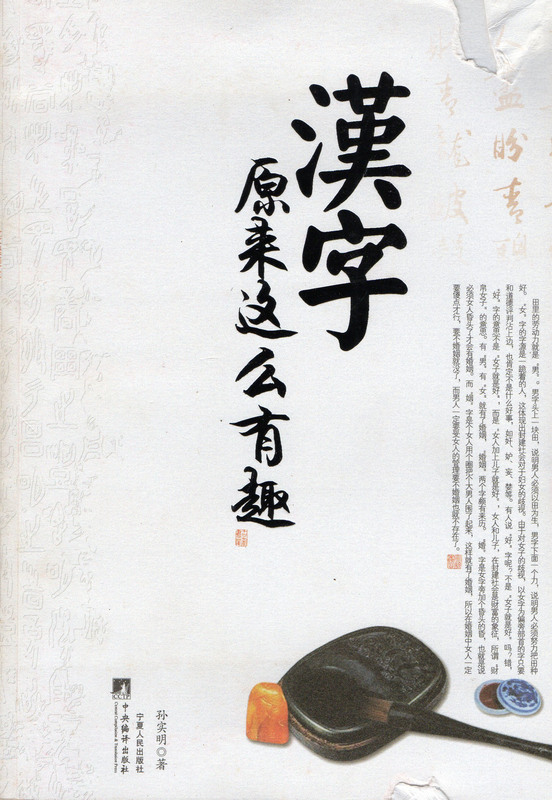 漢字
原来这么有趣
田里的劳动力就是“男”。男字头上一块田，说明男人必须以田为生，男字下面一个力，说明男人必须努力把田种
好。“女”字的字源是一跪着的人，这体现出封建社会对于妇女的歧视。由于对女子的歧视，以女字为偏旁部首的字只要
和道德评判沾上边，也肯定不是什么好事，如奸、妒、妄、婪等。有人说“好”字呢？不是“女子就是好”吗？错，
“好”字的意思不是“女子就是好”，而是“女人加上儿子就是好”，女人和儿子，在封建社会是财富的象征，所谓“财
帛女子”的意思。有“男”有“女”就有了婚姻，“婚姻”两个字颇有来历。“婚”字是女字旁加个昏头的昏，也就是说
必须女人昏头了才会有婚姻。而“姻”字是个女人用个圈把个大男人围了起来，这样就有了婚姻，所以在婚姻中女人一定
要傻点才行，要不婚姻就没了，而男人一定要受女人的管理要不婚姻也就不存在了。
孙实明◎著
宁夏人民出版社
CCTP
中央编译出版社
Central Compilation & Translation Press